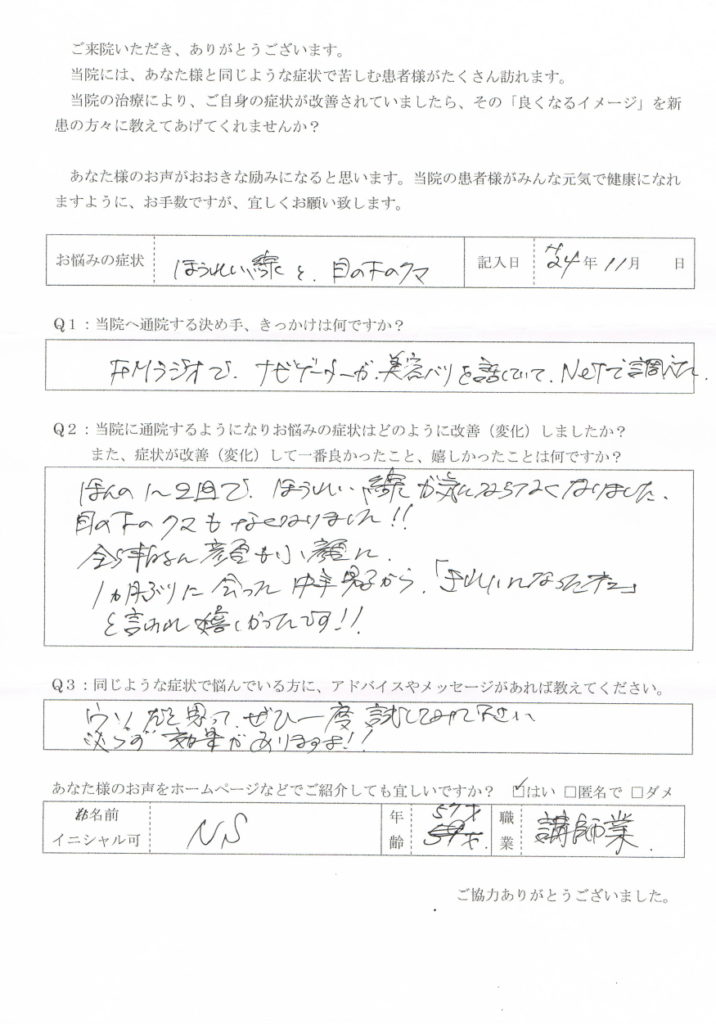 ご来院いただき、ありがとうございます。
当院には、あなた様と同じような症状で苦しむ患者様がたくさん訪れます。
当院の治療により、ご自身の症状が改善されていましたら、その「良くなるイメージ」を新
患の方々に教えてあげてくれませんか？
あなた様のお声がおおきな励みになると思います。当院の患者様がみんな元気で健康になれ
ますように、お手数ですが、宜しくお願い致します。
お悩みの症状 ほうれい線と、目の下のクマ 記入日 H24年11月 日
Q1：当院へ通院する決め手、きっかけは何ですか？
FMラジオで、ナビゲーターが、美容バリを話していて、Netで調べた。
Q2：当院に通院するようになりお悩みの症状はどのように改善（変化）しましたか？
また、症状が改善（変化）して一番良かったこと、嬉しかったことは何ですか？
ほんの1〜2回で、ほうれい線が気にならなくなりました。
目の下のクマもなくなりました!!
顔も小顔に、
1ヵ月ぶりに会った男子から、「きれいになったネ」
と言われ嬉しかったです!!
Q3：同じような症状で悩んでいる方に、アドバイスやメッセージがあれば教えてください。
ウソだと思って、ぜひ一度試してみて下さい
必らず効果がありますよ!!
あなた様のお声をホームページなどでご紹介しても宜しいですか？ ☑はい □匿名で □ダメ
お名前 NS 年 57才 職 講師業
イニシャル可 齢 業
ご協力ありがとうございました。